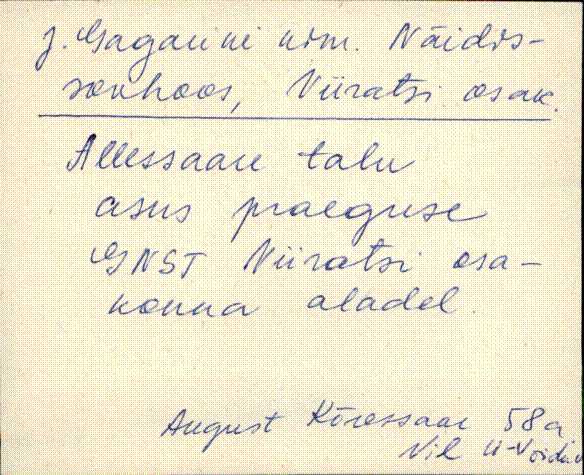 J. Gagarini nim. Näidis-
sovhoos, Viiratsi osak.
Allessaare talu
asus praeguse
GNST Viiratsi osa-
konna aladel.
August Kõressaar 58 a
Vil U-Võidu